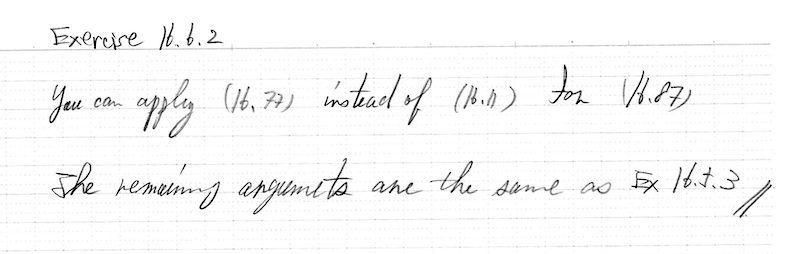 Exercise 16.6.2
You can apply (16.77) instead of (16.11) for (16.87)
The remaining argumets are the same as Ex 16.5.3 //